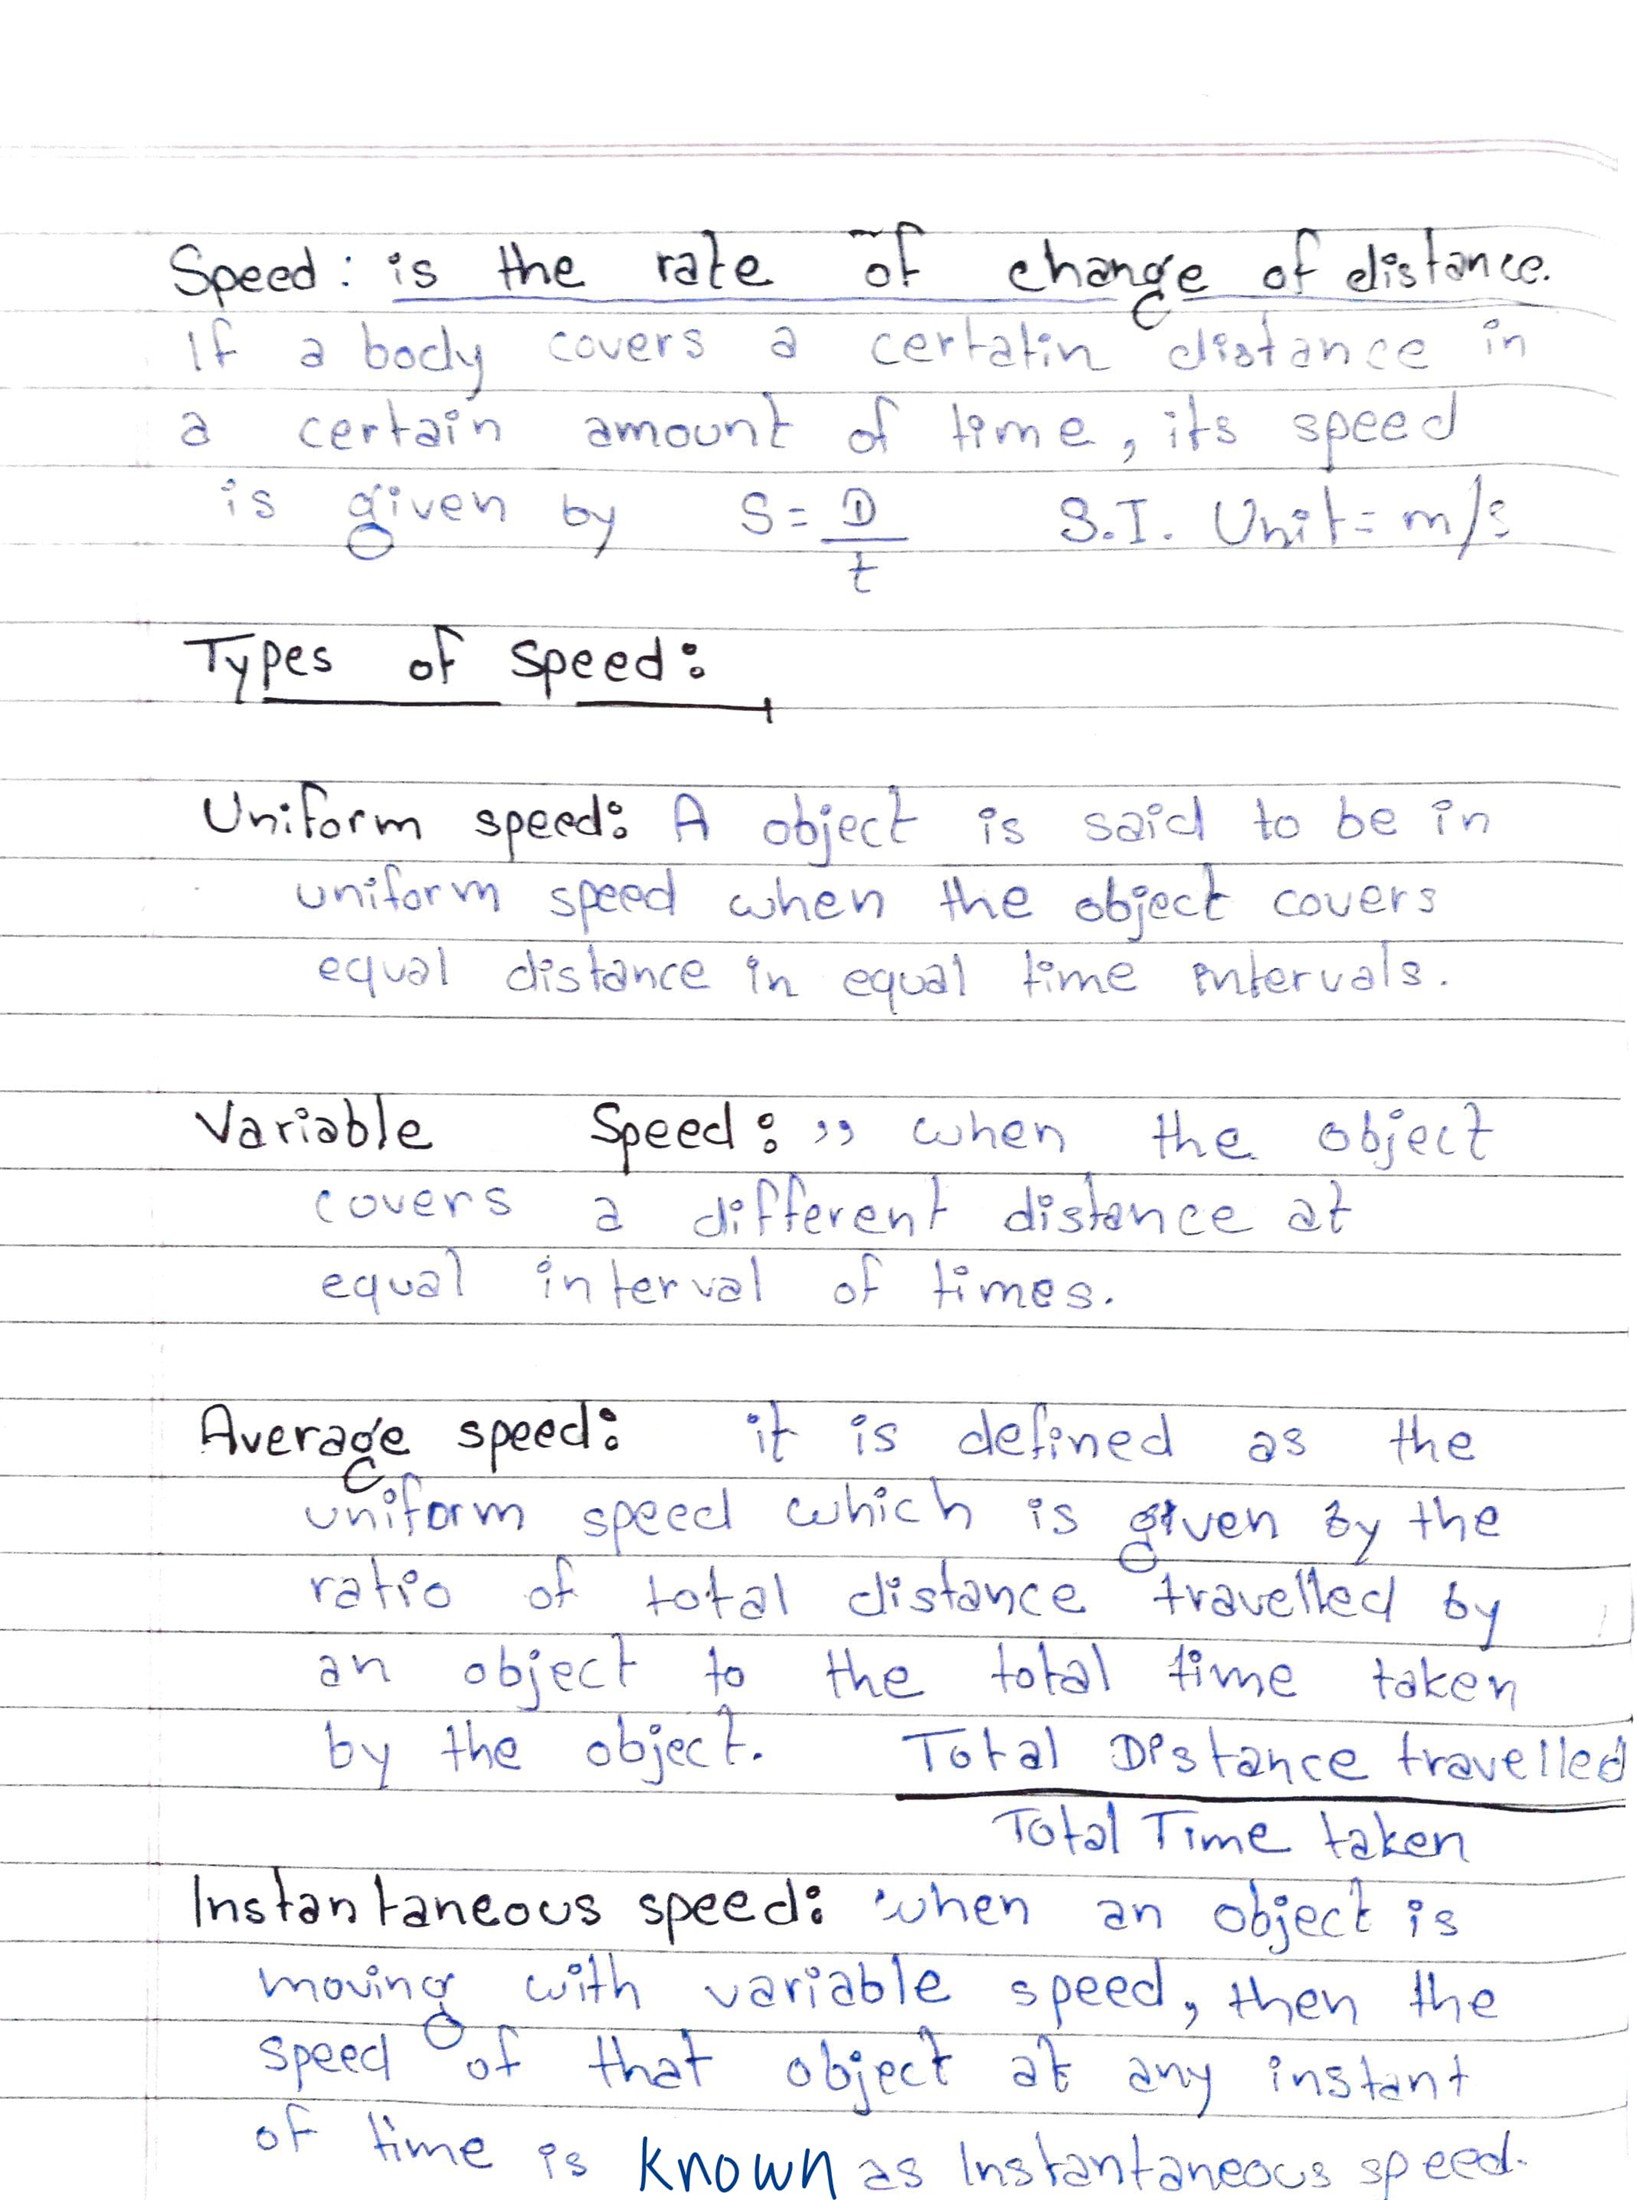 Speed : is the rate of change of distance.
If a body covers a certatin distance in
a certain amount of time, its speed
is given by S = D/t S.I. Unit = m/s
Types of Speed:
Uniform speed: A object is said to be in
uniform speed when the object covers
equal distance in equal time intervals.
Variable Speed: ,, when the object
covers a different distance at
equal interval of times.
Average speed: it is defined as the
uniform speed which is given by the
ratio of total distance travelled by
an object to the total time taken
by the object. Total Distance travelled
Total Time taken
Instantaneous speed: when an object is
moving with variable speed, then the
speed of that object at any instant
of time is known as Instantaneous speed.